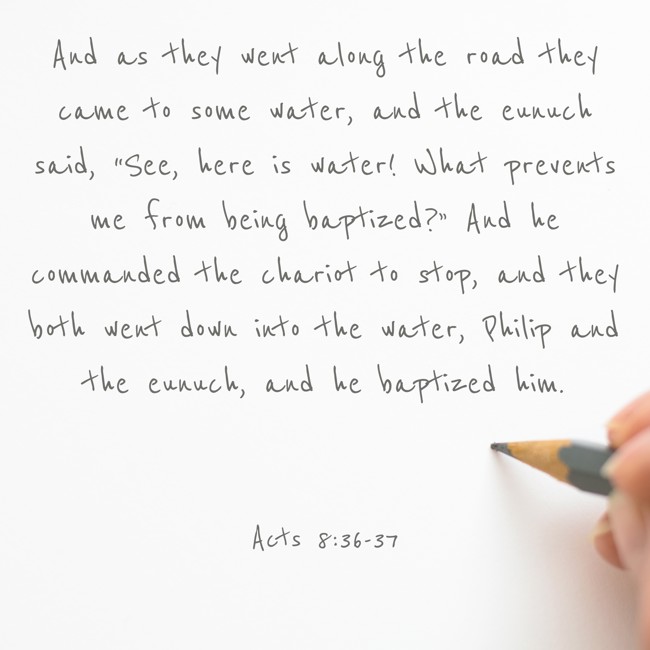 And as they went along the road they
came to some water, and the eunuch
said, "See, here is water! What prevents
me from being baptized?" And he
commanded the chariot to stop, and they
both went down into the water, Philip and
the eunuch, and he baptized him.
Acts 8:36-37